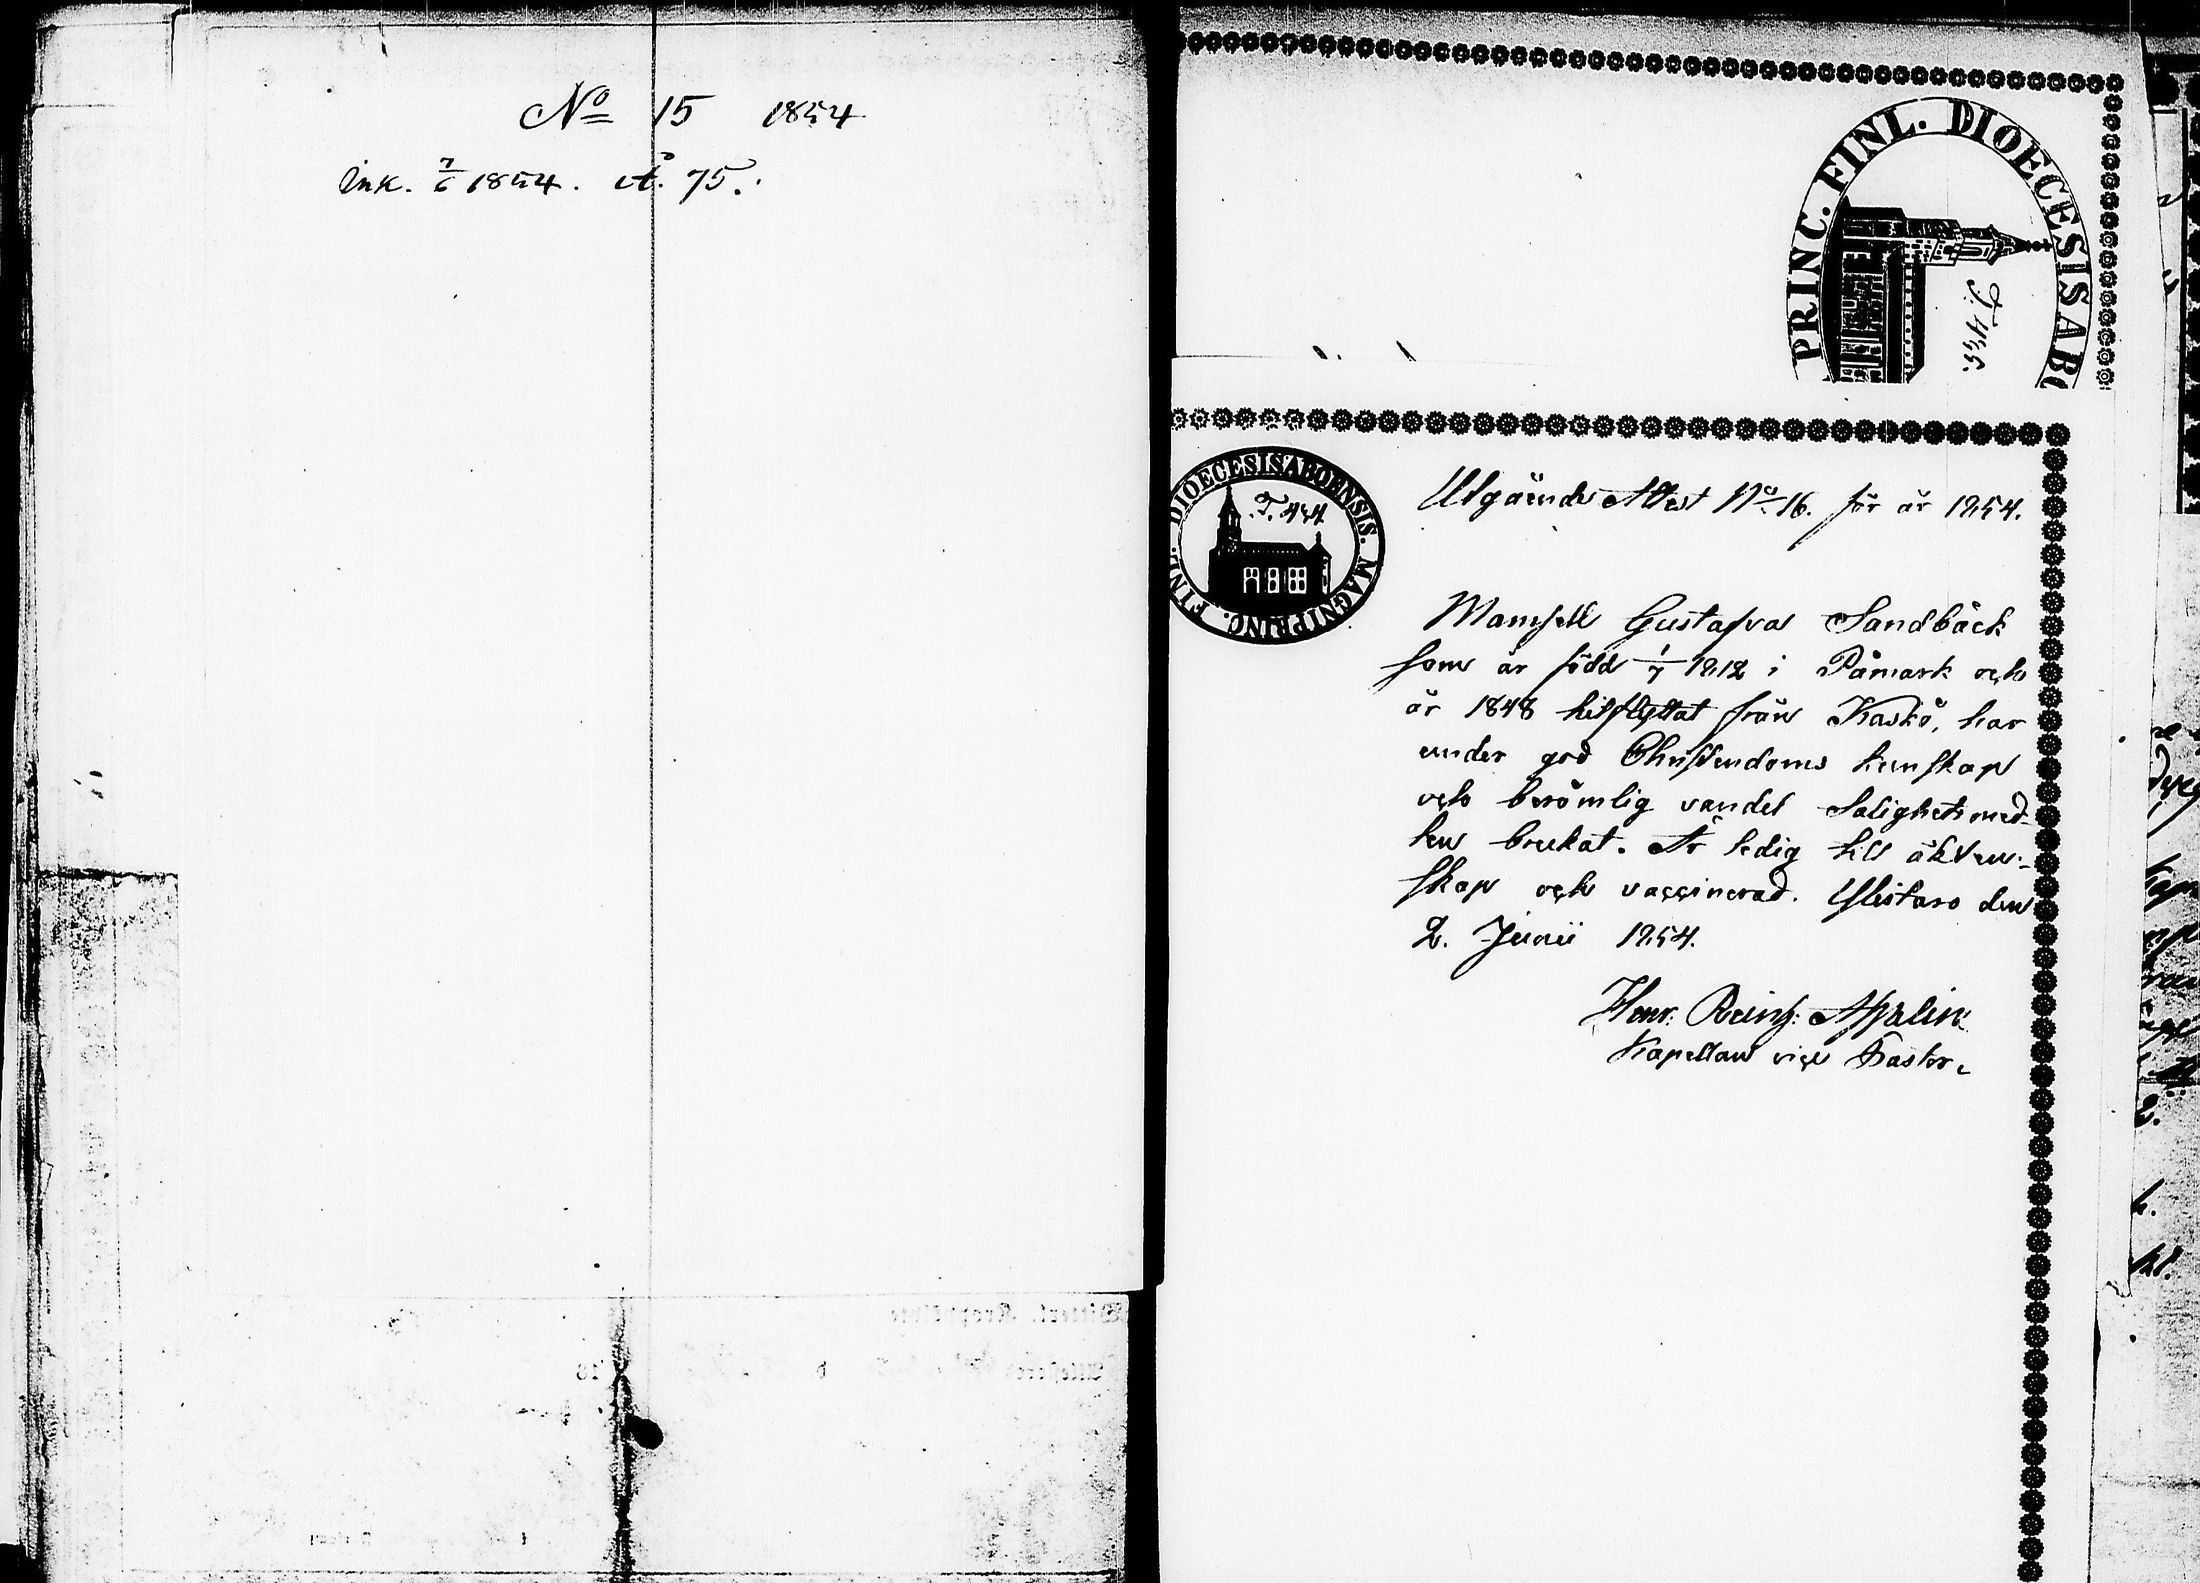 No 15 1854
Ink. 7/6 1854. A. 75.
PRINC. FINL. DIOECESIS ABO
T. 455.
FINL. DIOECESIS ABOENSIS. MAGNI PRINC.
T. 454
Utgående Attest No 16. för år 1854.
Mamsell Gustafva Sandbäck
som är född 1/7 1812 i Påmark och
år 1848 hitflyttat från Kaskö, har
under god Christendoms kunskap
och berömlig vandel Salighetsmed-
len brukat. Är ledig till äkten-
skap och vaccinerad. Ylistaro den
2. Junii 1854.
Henr. Reinh:
Kapellan vice Pastor.